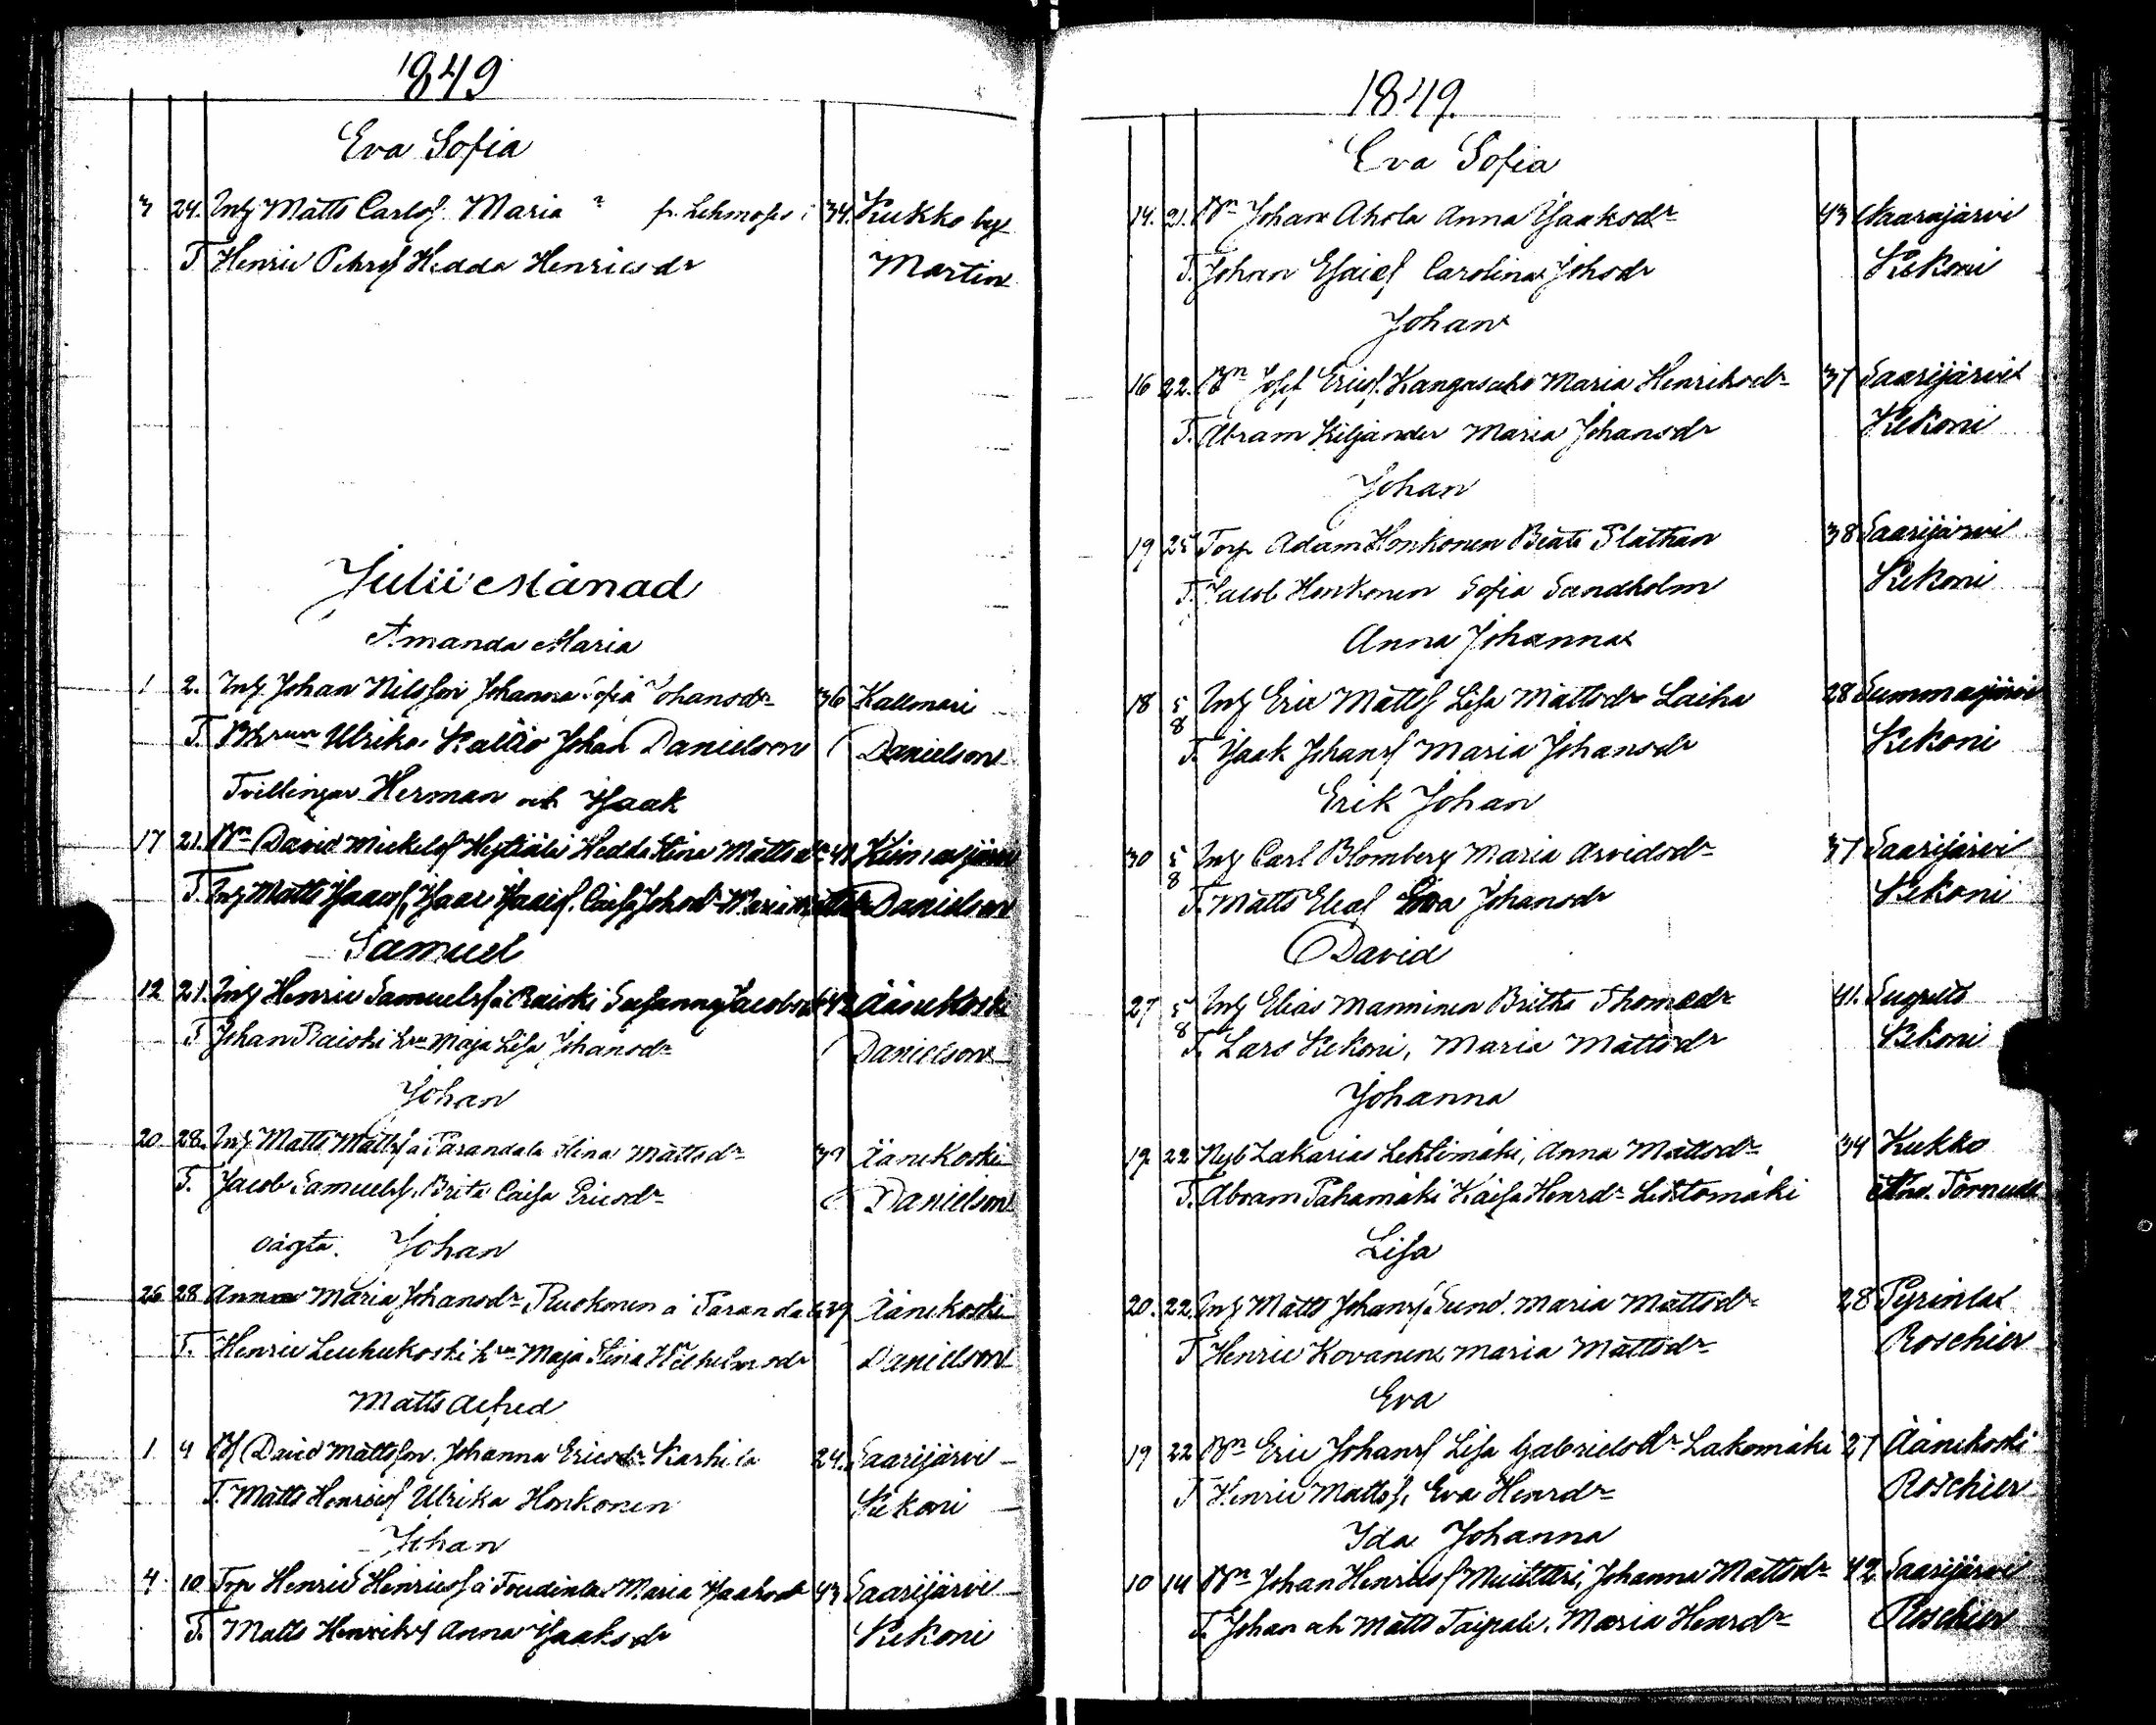 1849
Eva Sofia
3 24. Inh Matts Carlsf Maria ? fr. 34. Kukko by
T Henric Petrsf Hedda Henricsdr Martin
Julii Månad
Amanda Maria
1 2. Inh Johan Nilsson Johanna Sofia Johansdr 36 Kallmari
T. Ulrika Kallio Johan Danielson Danielson
Tvillingar Herman och Isaak
17 21. Bn David Mickelsf Hedda Stina Mattsdr 41
T. Inh Matts Isaacsf, Isaac Isaacsf. Caisa Johsdr Maria Danielson
Samuel
12 21. Inh Henric Samuelsf à Raiski Susanna Jacobsdr 42 Äänekoski
T Johan Raiski hu Maja Lisa Johansdr Danielson
Johan
20 28. Inh Matts Mattsf à Parandala Stina Mattsdr 39 Äänekoski
T. Jacob Samuelsf. Brita Caisa Ericsdr Danielson
oägta. Johan
26 28 Anna Maria Johansdr Ruokonen à Parandala 39 Äänekoski
T. Henric Leuhukoski hu Maja Stina Wilhelmsdr Danielson
Matts Alfred
1 4 David Mattsson. Johanna Ericsdr Karhila 24. Saarijärvi
T. Matts Henricsf Ulrika Honkonen Kekoni
Johan
4 10 Torp Henric Henricsf à Maria Isaksdr 43 Saarijärvi
T. Matts Henriksf Anna Isaaksdr Kekoni
1849.
Eva Sofia
14. 21. Bn Johan Ahola Anna Isaaksdr 43 Saarijärvi
T. Johan Esaiesf Carolina Johsdr Kekoni
Johan
16 22. Bn Josef Ericsf. Kangasaho Maria Henriksdr 37 Saarijärvi
T. Abram Kiljander Maria Johansdr Kekoni
Johan
19 25 Torp Adam Honkonen Beata Plathan 38 Saarijärvi
T. Jacob Honkonen Sofia Sandholm Kekoni
Anna Johanna
18 5/8 Inh Eric Mattsf Lisa Mattsdr Laiha 28 Summasjärvi
T. Isaak Johansf Maria Johansdr Kekoni
Erik Johan
30 5/8 Inh Carl Blomberg Maria Arvidsdr 37 Saarijärvi
T. Matts Eliasf Eva Johansdr Kekoni
David
27 5/8 Inh Elias Manninen Britha Thomsdr 41.
T. Lars Kekoni, Maria Mattsdr Kekoni
Johanna
19 22 Nyb Zakarias Lehtimäki, Anna Mattsdr 34 Kukko
T. Abram Pahamäki Kaisa Henrdr Lehtomäki And. Törnudd
Lisa
20. 22. Inh Matts Johansf Sund. Maria Mattsdr 28 Pyrinlax
T Henric Kovanen Maria Mattsdr Roschier
Eva
19 22 Bn Eric Johansf Lisa Gabrielsdr Lakomäki 27 Äänekoski
T Henric Mattsf, Eva Henrdr Roschier
Ida Johanna
10 14 Bn Johan Henricsf Muittari, Johanna Mattsdr 42 Saarijärvi
T. Johan och Matts Taipale. Maria Henrdr Roschier